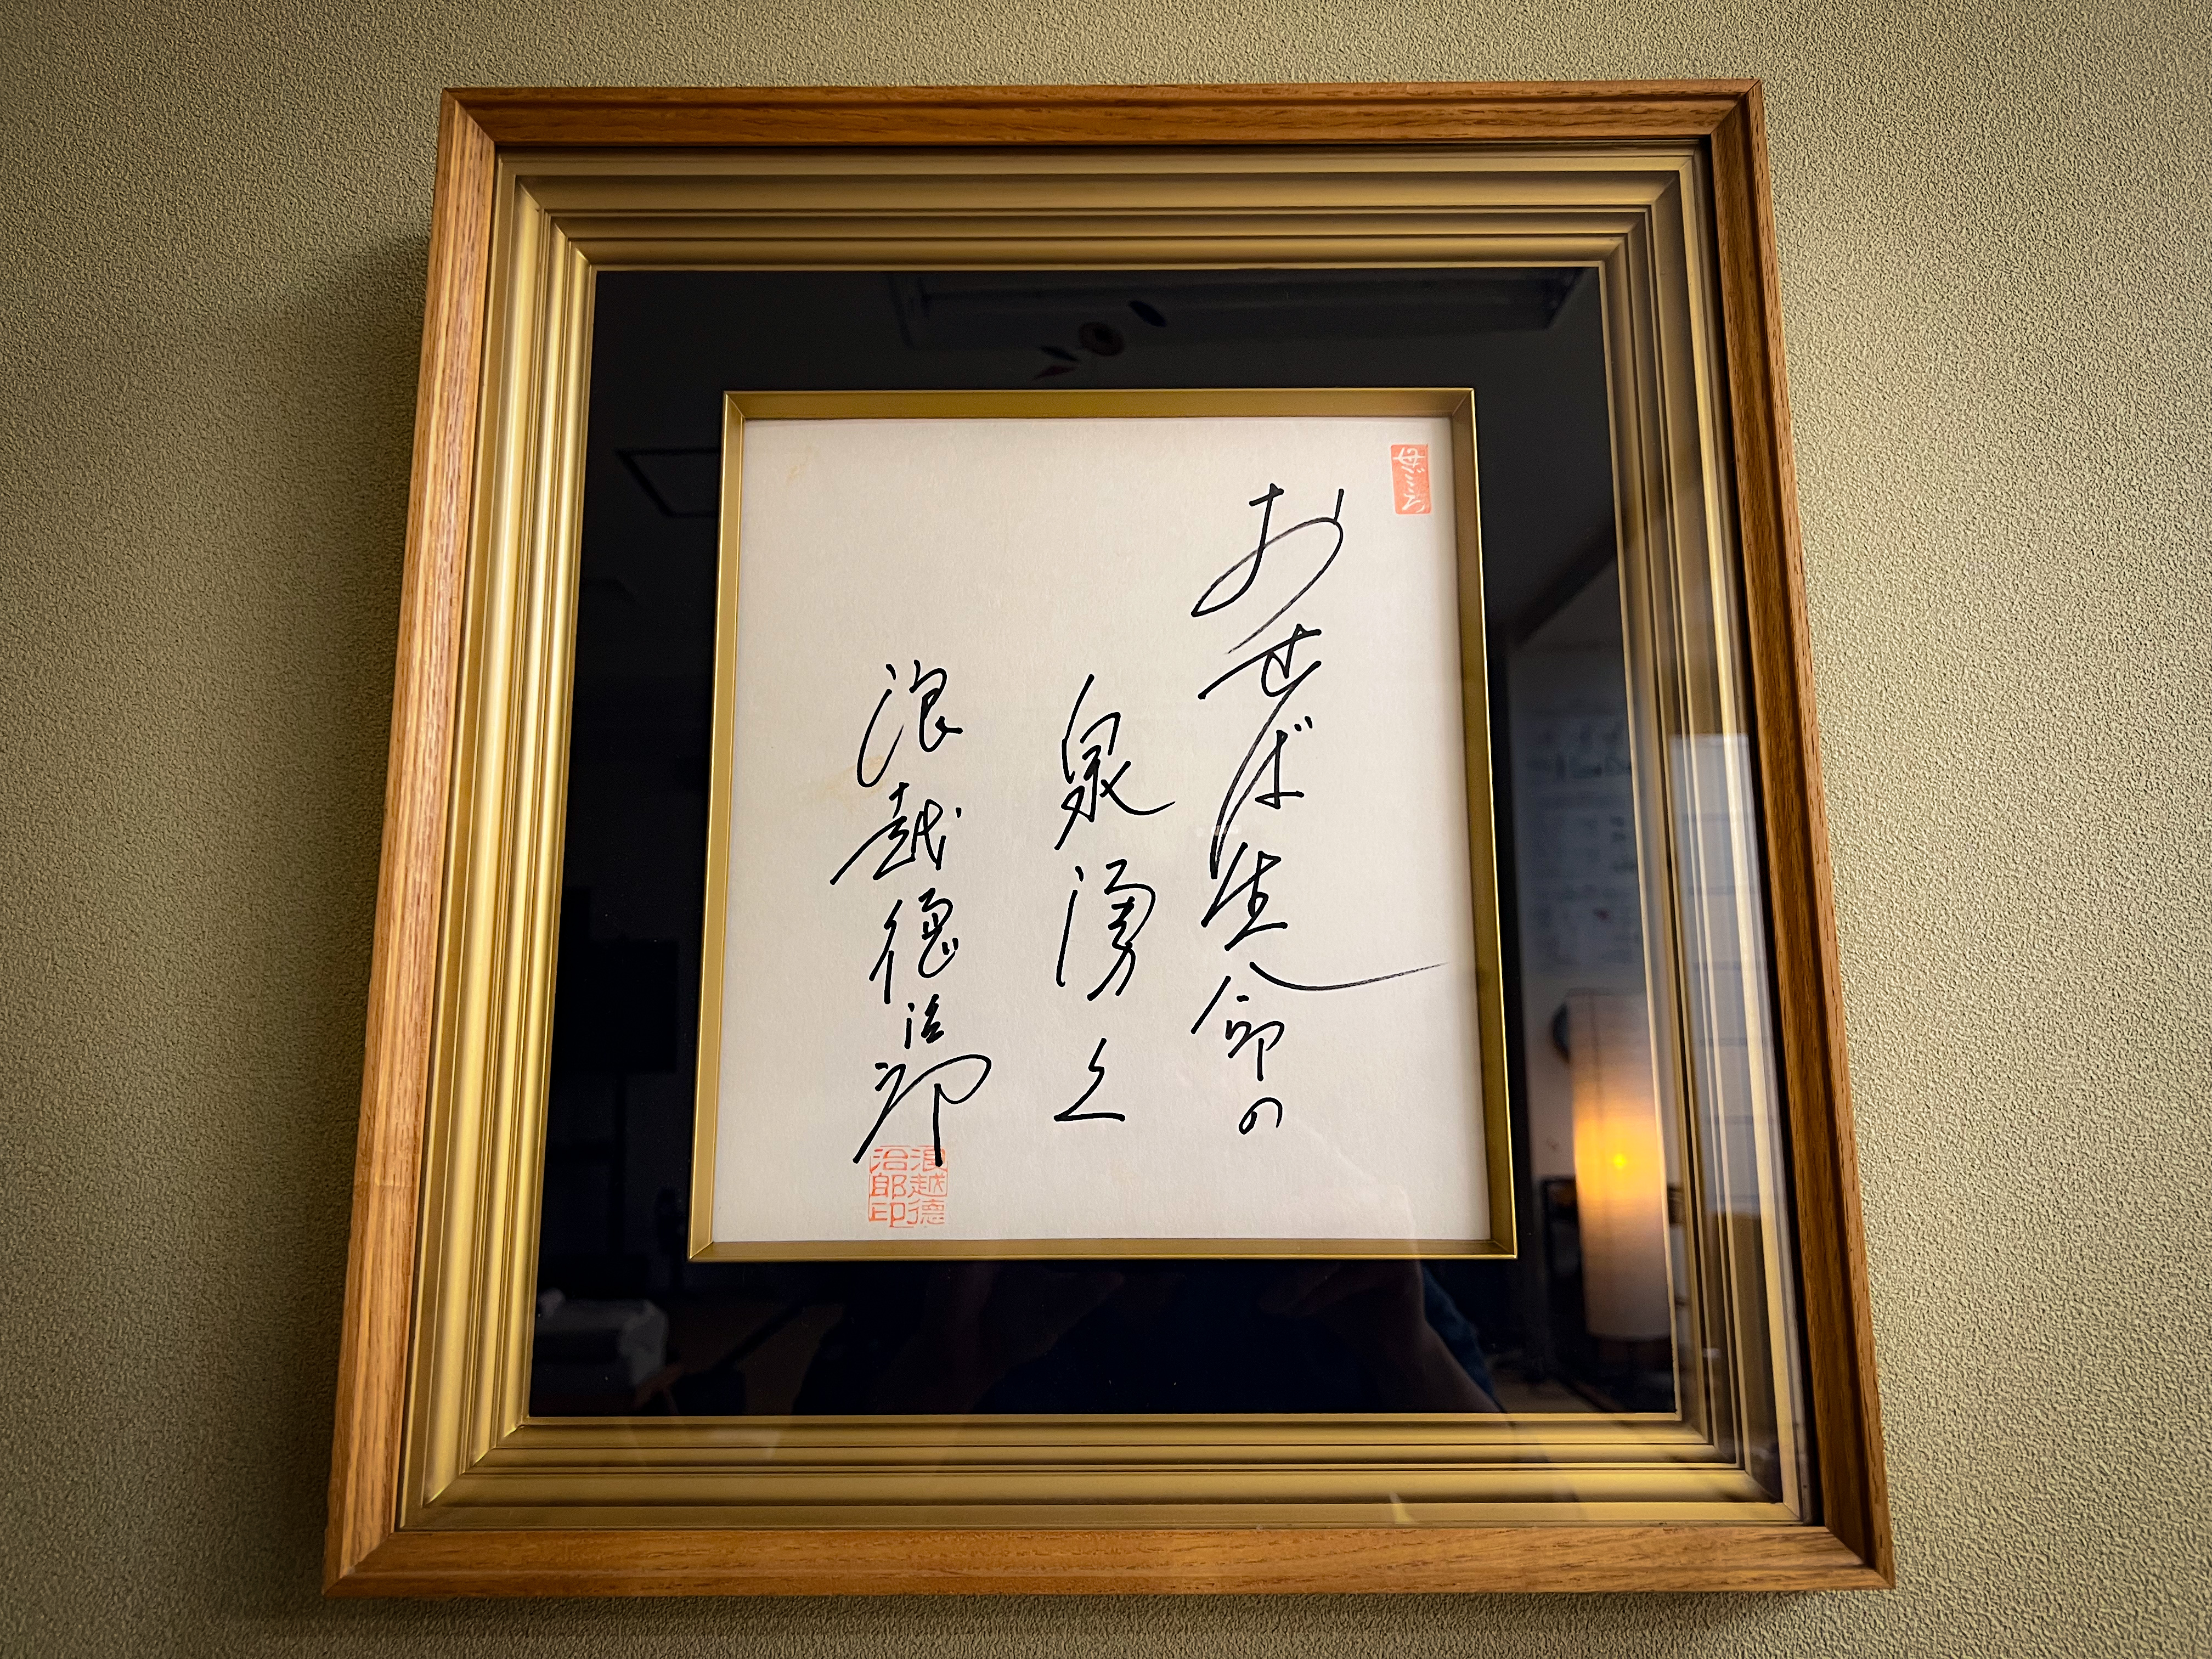 母ごころ
おせば生命の
泉湧く
浪越徳治郎
浪越徳
治郎印